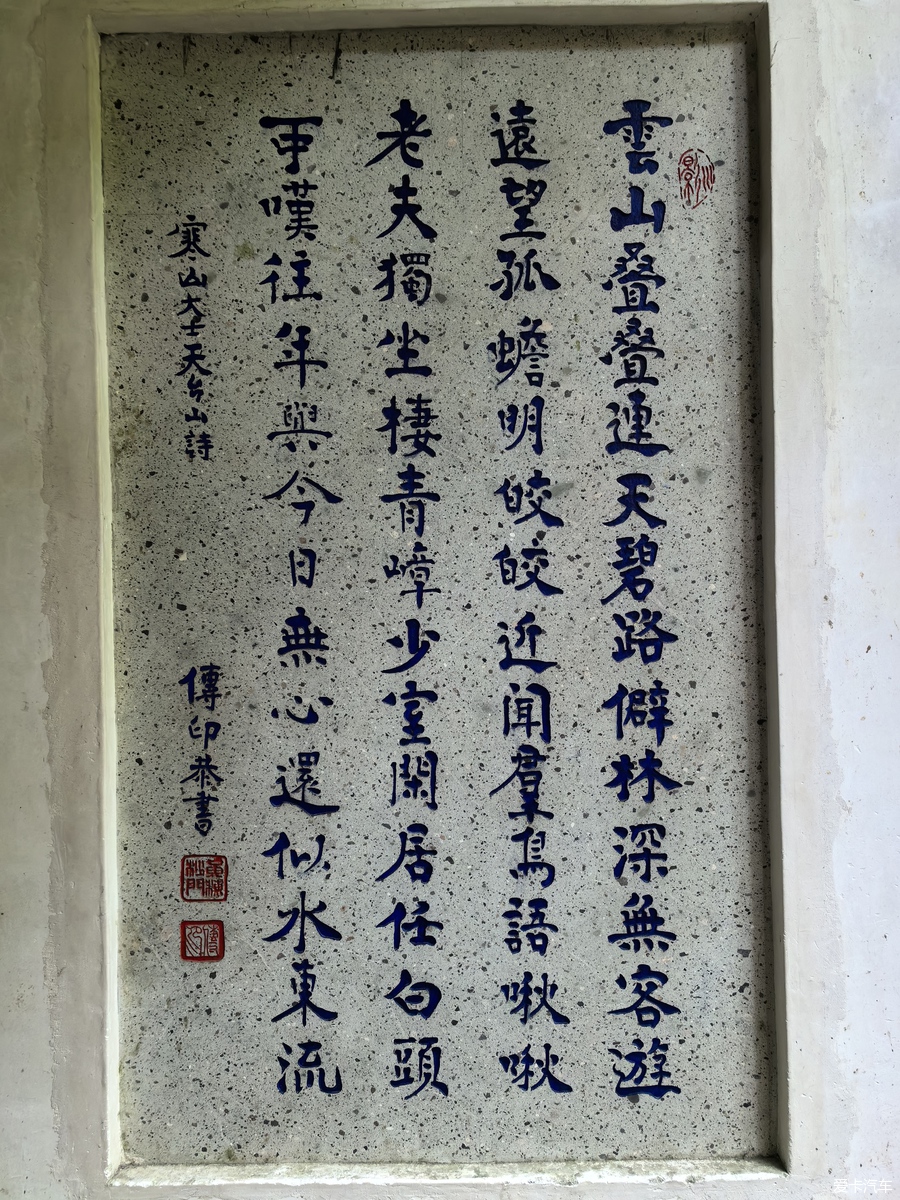 雲山叠叠連天碧路僻林深無客遊
遠望孤蟾明皎皎近闻羣鳥語啾啾
老夫獨坐棲青嶂少室閑居任白頭
可嘆往年與今日無心還似水東流
寒山大士天台山詩
傳印恭書
爱卡汽车